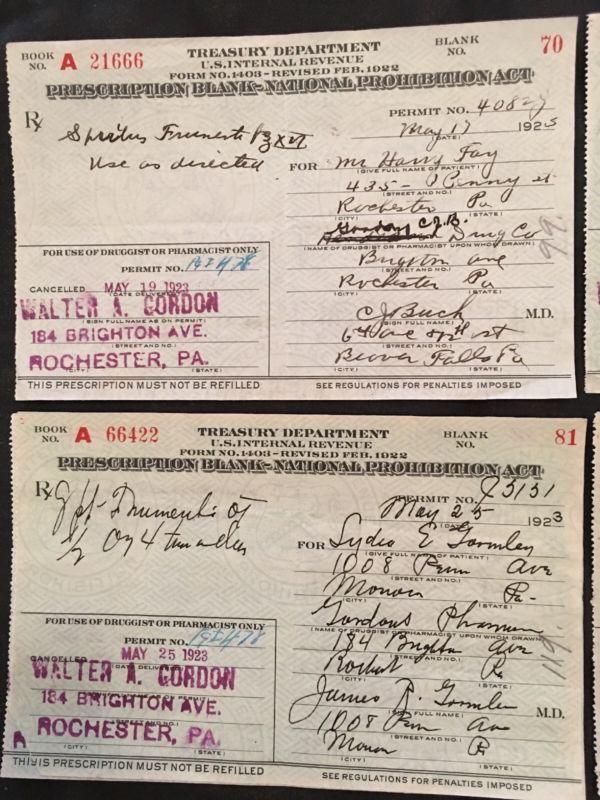 BOOK NO. A 21666
TREASURY DEPARTMENT
U.S. INTERNAL REVENUE
FORM NO. 1403 - REVISED FEB. 1922
BLANK NO. 70
PRESCRIPTION BLANK - NATIONAL PROHIBITION ACT
Rx
PERMIT NO.
May 17 1923
(DATE)
Use as directed
FOR Mr Harry Fay
(GIVE FULL NAME OF PATIENT)
435 - Penny st
(STREET AND NO.)
Rochester Pa
(CITY) (STATE)
Gordon C.J.B.
Drug Co
(NAME OF DRUGGIST OR PHARMACIST UPON WHOM DRAWN)
99.
ave
(STREET AND NO.)
Rochester Pa
(CITY) (STATE)
C J Buck M.D.
(SIGN FULL NAME)
6th ave & 12th st
(STREET AND NO.)
Beaver Falls Pa
(CITY) (STATE)
FOR USE OF DRUGGIST OR PHARMACIST ONLY
PERMIT NO.
CANCELLED MAY 19 1923
(DATE DELIVERED)
WALTER A. GORDON
(SIGN FULL NAME AS ON PERMIT)
184 BRIGHTON AVE.
(STREET AND NO.)
ROCHESTER, PA.
(CITY) (STATE)
THIS PRESCRIPTION MUST NOT BE REFILLED
SEE REGULATIONS FOR PENALTIES IMPOSED
BOOK NO. A 66422
TREASURY DEPARTMENT
U.S. INTERNAL REVENUE
FORM NO. 1403 - REVISED FEB. 1922
BLANK NO. 81
PRESCRIPTION BLANK - NATIONAL PROHIBITION ACT
Rx
PERMIT NO.
May 25 1923
(DATE)
FOR Lydia E Gormley
(GIVE FULL NAME OF PATIENT)
1008 Penn Ave
(STREET AND NO.)
Monaca Pa-
(CITY) (STATE)
Gordons
(NAME OF DRUGGIST OR PHARMACIST UPON WHOM DRAWN)
184 Brighton Ave
(STREET AND NO.)
Pa
(CITY) (STATE)
119.
James R. Gormley M.D.
(SIGN FULL NAME)
1008 Penn Ave
(STREET AND NO.)
Monaca P
(CITY) (STATE)
FOR USE OF DRUGGIST OR PHARMACIST ONLY
PERMIT NO.
CANCELLED MAY 25 1923
(DATE DELIVERED)
WALTER A. GORDON
184 BRIGHTON AVE.
(STREET AND NO.)
ROCHESTER, PA.
(CITY) (STATE)
THIS PRESCRIPTION MUST NOT BE REFILLED
SEE REGULATIONS FOR PENALTIES IMPOSED